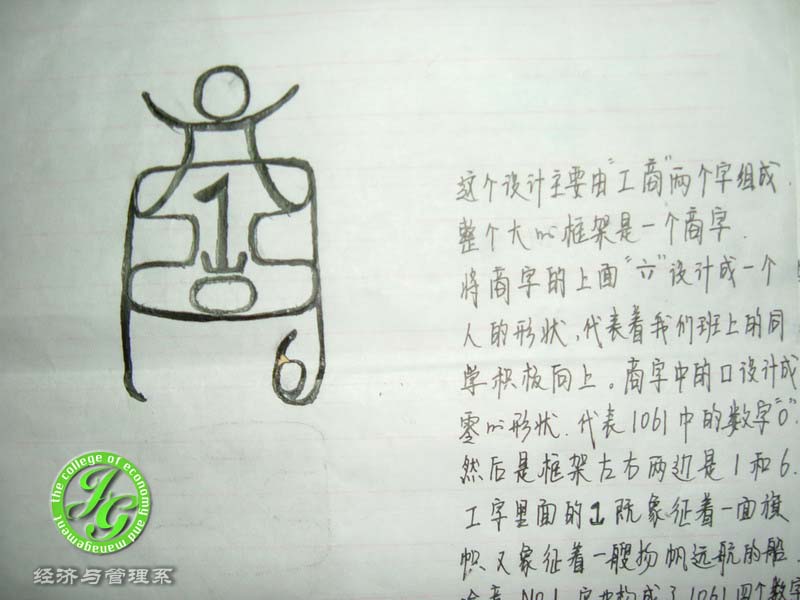 1
6
这个设计主要由"工商"两个字组成.
整个大的框架是一个商字.
将商字的上面"六"设计成一个
人的形状,代表着我们班上的同
学积极向上。商字中的口设计成
零的形状.代表1061中的数字"0".
然后是框架左右两边是1和6.
工字里面的1既象征着一面旗
帜又象征着一艘扬帆远航的船.
No1 字也构成了1061四个数字
the college of economy and management
JG
经济与管理系